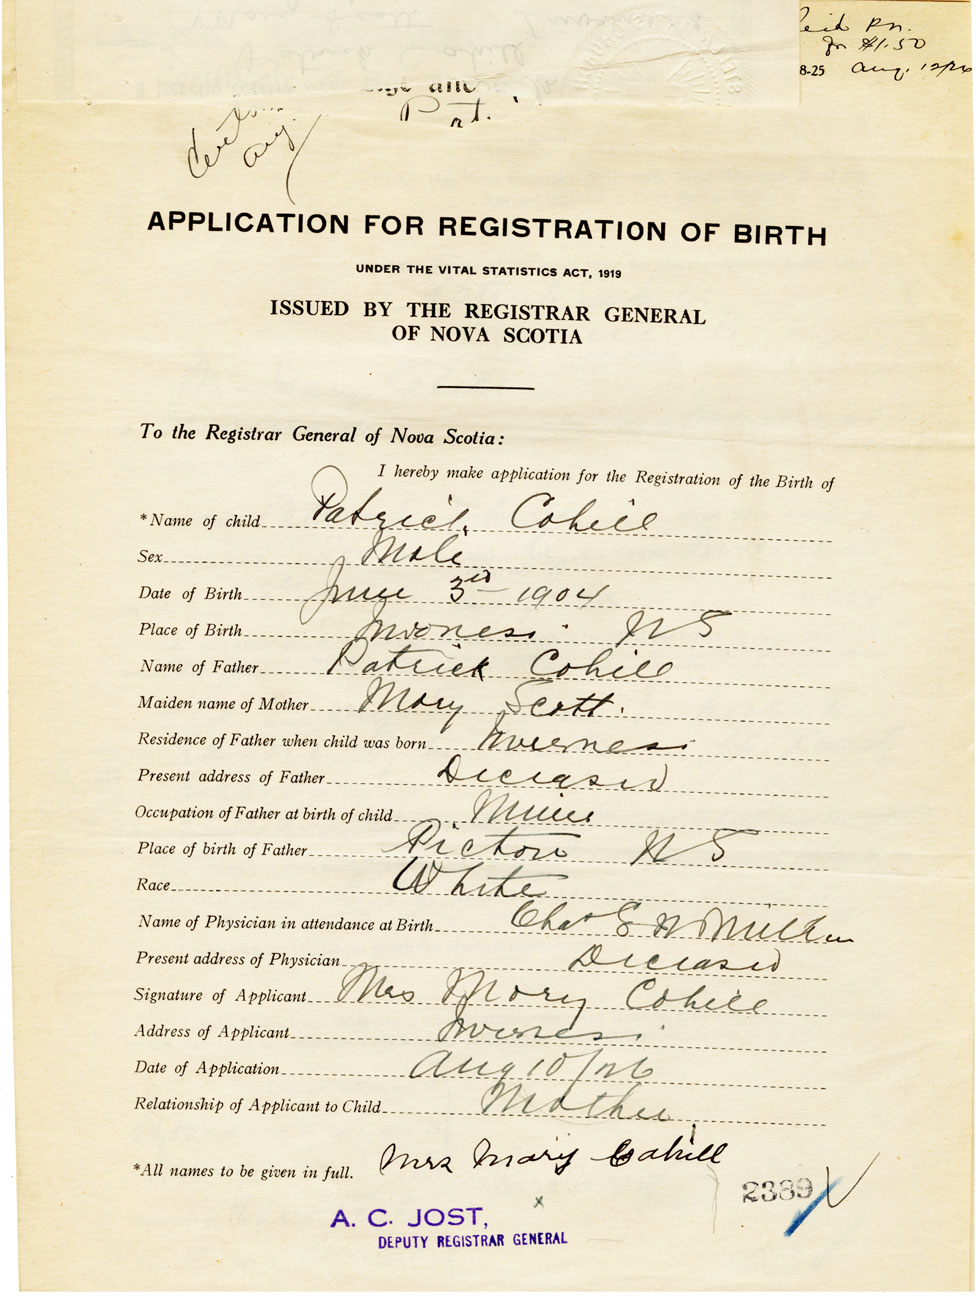 Pd.
for $1.50
8-25 Aug. 12/26
Pat.
Aug.
APPLICATION FOR REGISTRATION OF BIRTH
UNDER THE VITAL STATISTICS ACT, 1919
ISSUED BY THE REGISTRAR GENERAL
OF NOVA SCOTIA
To the Registrar General of Nova Scotia:
I hereby make application for the Registration of the Birth of
*Name of child Patrick Cahill
Sex Male
Date of Birth June 3rd 1904
Place of Birth Inverness N S
Name of Father Patrick Cahill
Maiden name of Mother Mary Scott.
Residence of Father when child was born Inverness
Present address of Father Deceased
Occupation of Father at birth of child Miner
Place of birth of Father Pictou N S
Race White
Name of Physician in attendance at Birth Chas E
Present address of Physician Deceased
Signature of Applicant Mrs Mary Cahill
Address of Applicant Inverness
Date of Application Aug 10/26
Relationship of Applicant to Child Mother
*All names to be given in full. Mrs Mary Cahill
2389
A. C. JOST,
DEPUTY REGISTRAR GENERAL